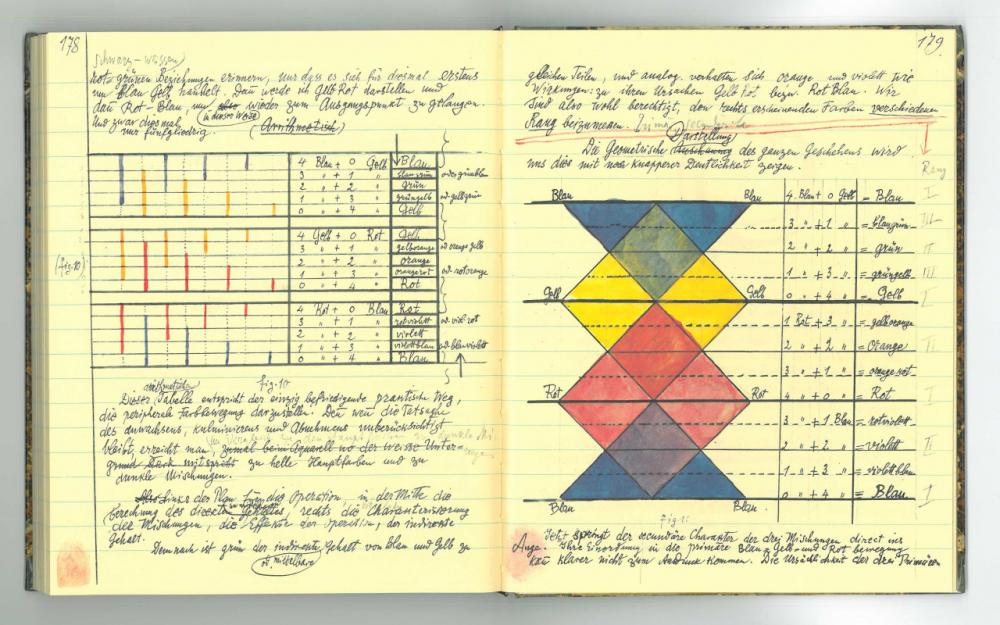 178
schwarz-weissen
rot-grünen Beziehungen erinnern, nur dass es sich für diesmal erstens
um Blau Gelb handelt. Dann werde ich Gelb Rot darstellen und
dan Rot-Blau, um also wieder zum Ausgangspunkt zu gelangen.
(in dieser Weise)
Und zwar diesmal
nur fünfgliedrig. (Arrithmetisch)
4 Blau + 0 Gelb Blau
3 " + 1 " blaugrün od. grünblau
2 " + 2 " Grün
1 " + 3 " grüngelb od. gelbgrün
0 " + 4 " Gelb
4 Gelb + 0 Rot Gelb
3 " + 1 " gelborange od. orange gelb
2 " + 2 " orange
(Fig. 10) 1 " + 3 " orangerot od. rotorange
0 " + 4 " Rot
4 Rot + 0 Blau Rot
3 " + 1 " rotviolett od. viol. rot
2 " + 2 " violett
1 " + 3 " violettblau od. blauviolett
0 " + 4 " Blau
fig. 10
arithmetische
Dieser Tabelle entspricht der einzig befriedigende practische Weg,
die peripherale Farbbewegung darzustellen. Den wen die Tatsache
des anwachsens, kulminierens und Abnehmens unberücksichtigt
bleibt, erreicht man, zumal beim Aquarell wo der weisse Unter-
grund stark mitspricht zu helle Hauptfarben und zu
dunkle Mischungen.
Also Links der Plan für die Operation, in der Mitte die
berechnung des directen Gehaltes, rechts die Charakterisierung
der Mischungen, die Effekte der Operation, der indirecte
Gehalt.
Demnach ist grün der indirecte Gehalt von Blau und Gelb zu
(od mittelbare)
179
gleichen Teilen, und analog verhalten sich orange und violett wie
Wirkungen zu ihren Ursachen Gelb Rot bezw. Rot Blau. Wir
sind also wohl berechtigt, den rechts erscheinenden Farben verschiedenen
Rang beizumessen.
Darstellung
Die Geometrische des ganzen Geschehens wird
uns dies mit noch knapperer Deutlichkeit zeigen.
Rang
Blau Blau 4 Blau + 0 Gelb = Blau I
3 " + 1 " = blaugrün III
2 " + 2 " = grün II
1 " + 3 " = grüngelb III
Gelb Gelb 0 " + 4 " = Gelb I
1 Rot + 3 " = gelborange
2 " + 2 " = Orange II
3 " + 1 " = orangerot
Rot Rot 4 " + 0 " = Rot I
3 " + 1 Blau = rotviolett
2 " + 2 " = violett II
1 " + 3 " = violettblau
0 " + 4 " = Blau I
Blau Blau
Fig. 11
Jetzt springt der secundäre Charakter der drei Mischungen direct ins
Auge. Ihre Einordnung in die primäre Blau-Gelb- und Rot bewegung
kan klarer nicht zum Ausdruck kommen. Die Ursächlichkeit der drei Primären